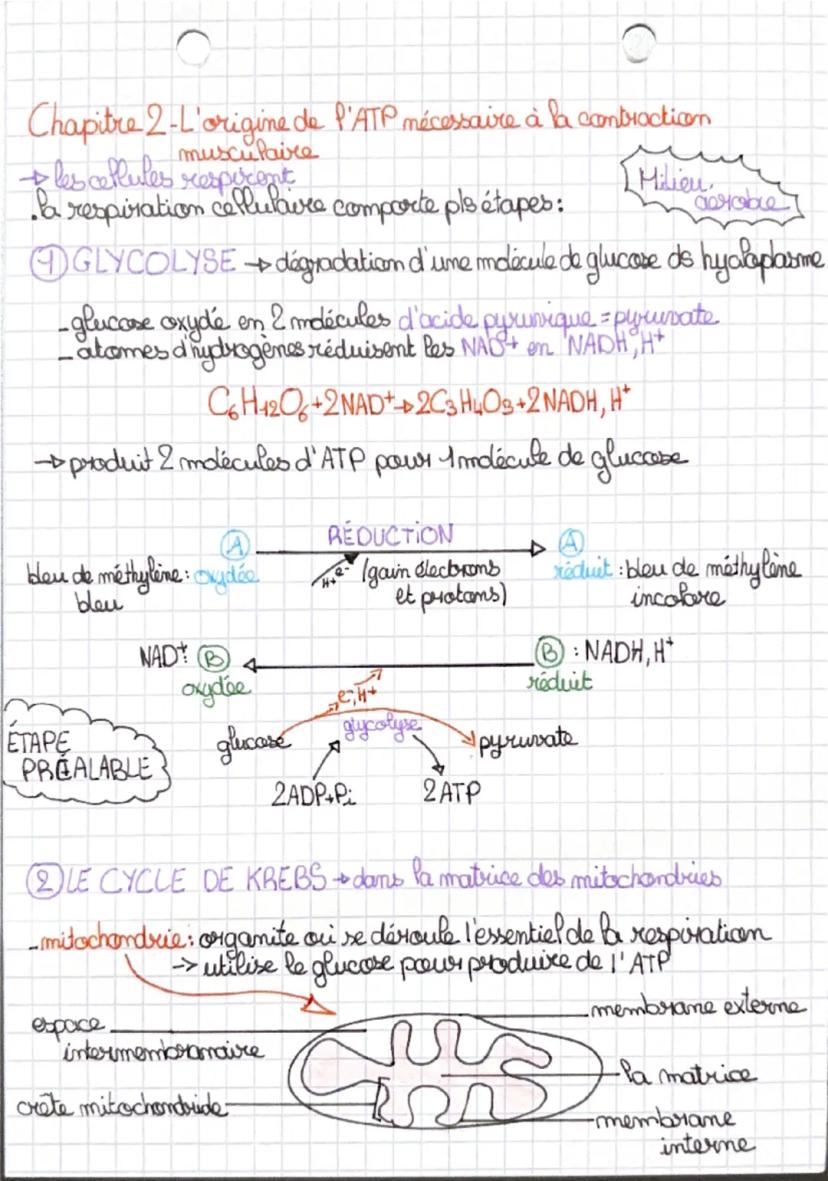 Chapitre 2-L'origine de l'ATP nécessaire à la contraction
musculaire
→ les cellules respirent
Milieu
aérobie
.la respiration cellulaire comporte pls étapes:
① GLYCOLYSE → dégradation d'une molécule de glucose ds hyaloplasme
-glucose oxydé en 2 molécules d'acide pyruvique = pyruvate
-atomes d'hydrogènes réduisent les NAD+ en NADH,H+
C6H12O6+2NAD+→2C3H4O3+2NADH,H+
→ produit 2 molécules d'ATP pour 1 molécule de glucose
A RÉDUCTION A
bleu de méthylène: oxydée H+ e- (gain électrons réduit : bleu de méthylène
bleu et protons) incolore
NAD+: B B : NADH,H+
oxydée réduit
e-,H+
ÉTAPE
PRÉALABLE
glucose glycolyse pyruvate
2ADP+Pi 2ATP
② LE CYCLE DE KREBS → dans la matrice des mitochondries
-mitochondrie: organite où se déroule l'essentiel de la respiration
-> utilise le glucose pour produire de l'ATP
membrane externe
espace
intermembranaire
la matrice
crête mitochondride
membrane
interne